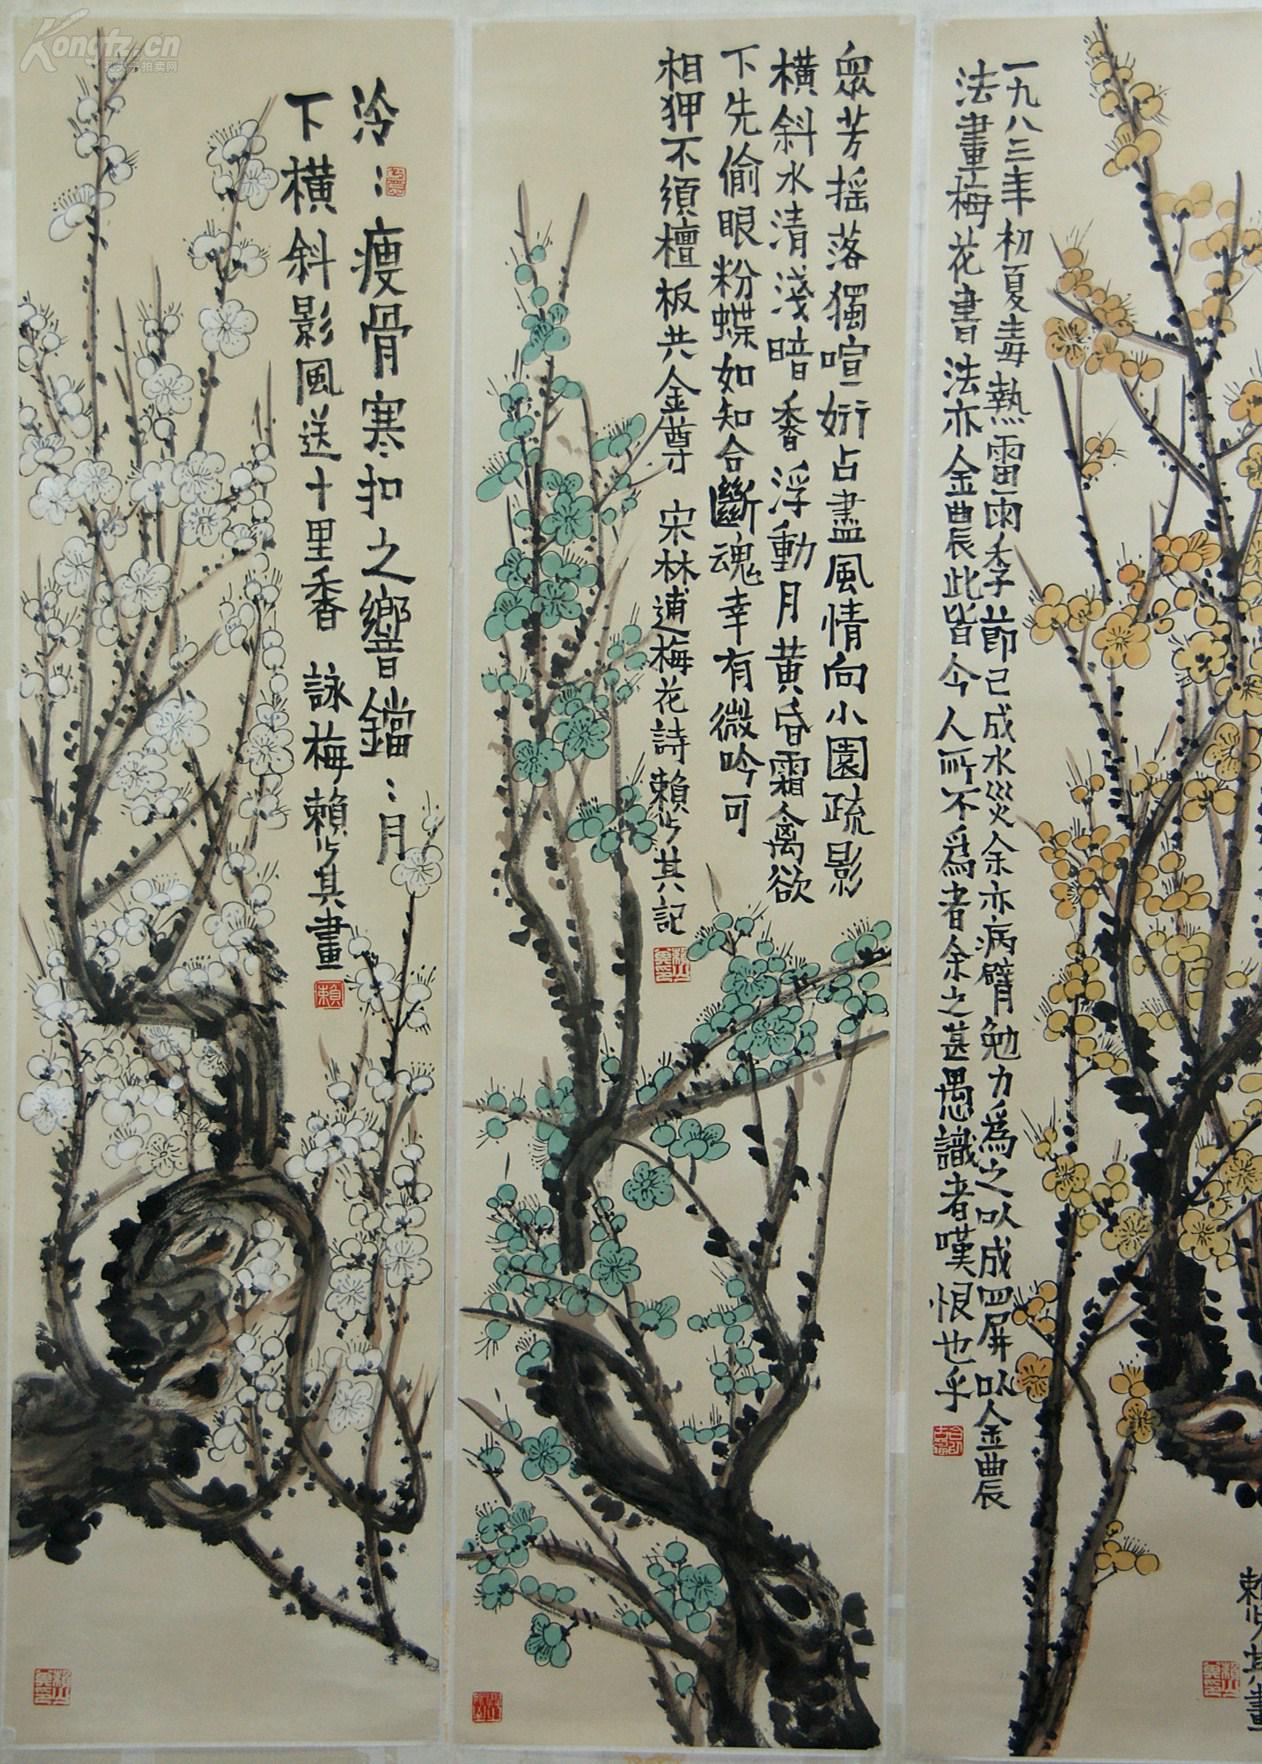 冷：瘦骨寒扣之響鐺：月
下橫斜影風送十里香　詠梅賴少其畫
眾芳摇落獨喧妍占盡風情向小園疏影
橫斜水清淺暗香浮動月黄昏霜禽欲
下先偷眼粉蝶如知合斷魂幸有微吟可
相狎不須檀板共金尊　宋林逋梅花詩賴少其記
一九八三年初夏毒熱雷雨季節已成水災余亦病臂勉力為之以成四屏以金農
法畫梅花書法亦金農此皆今人所不為者余之甚愚識者嘆恨也乎
賴少其畫
Kongfz.cn